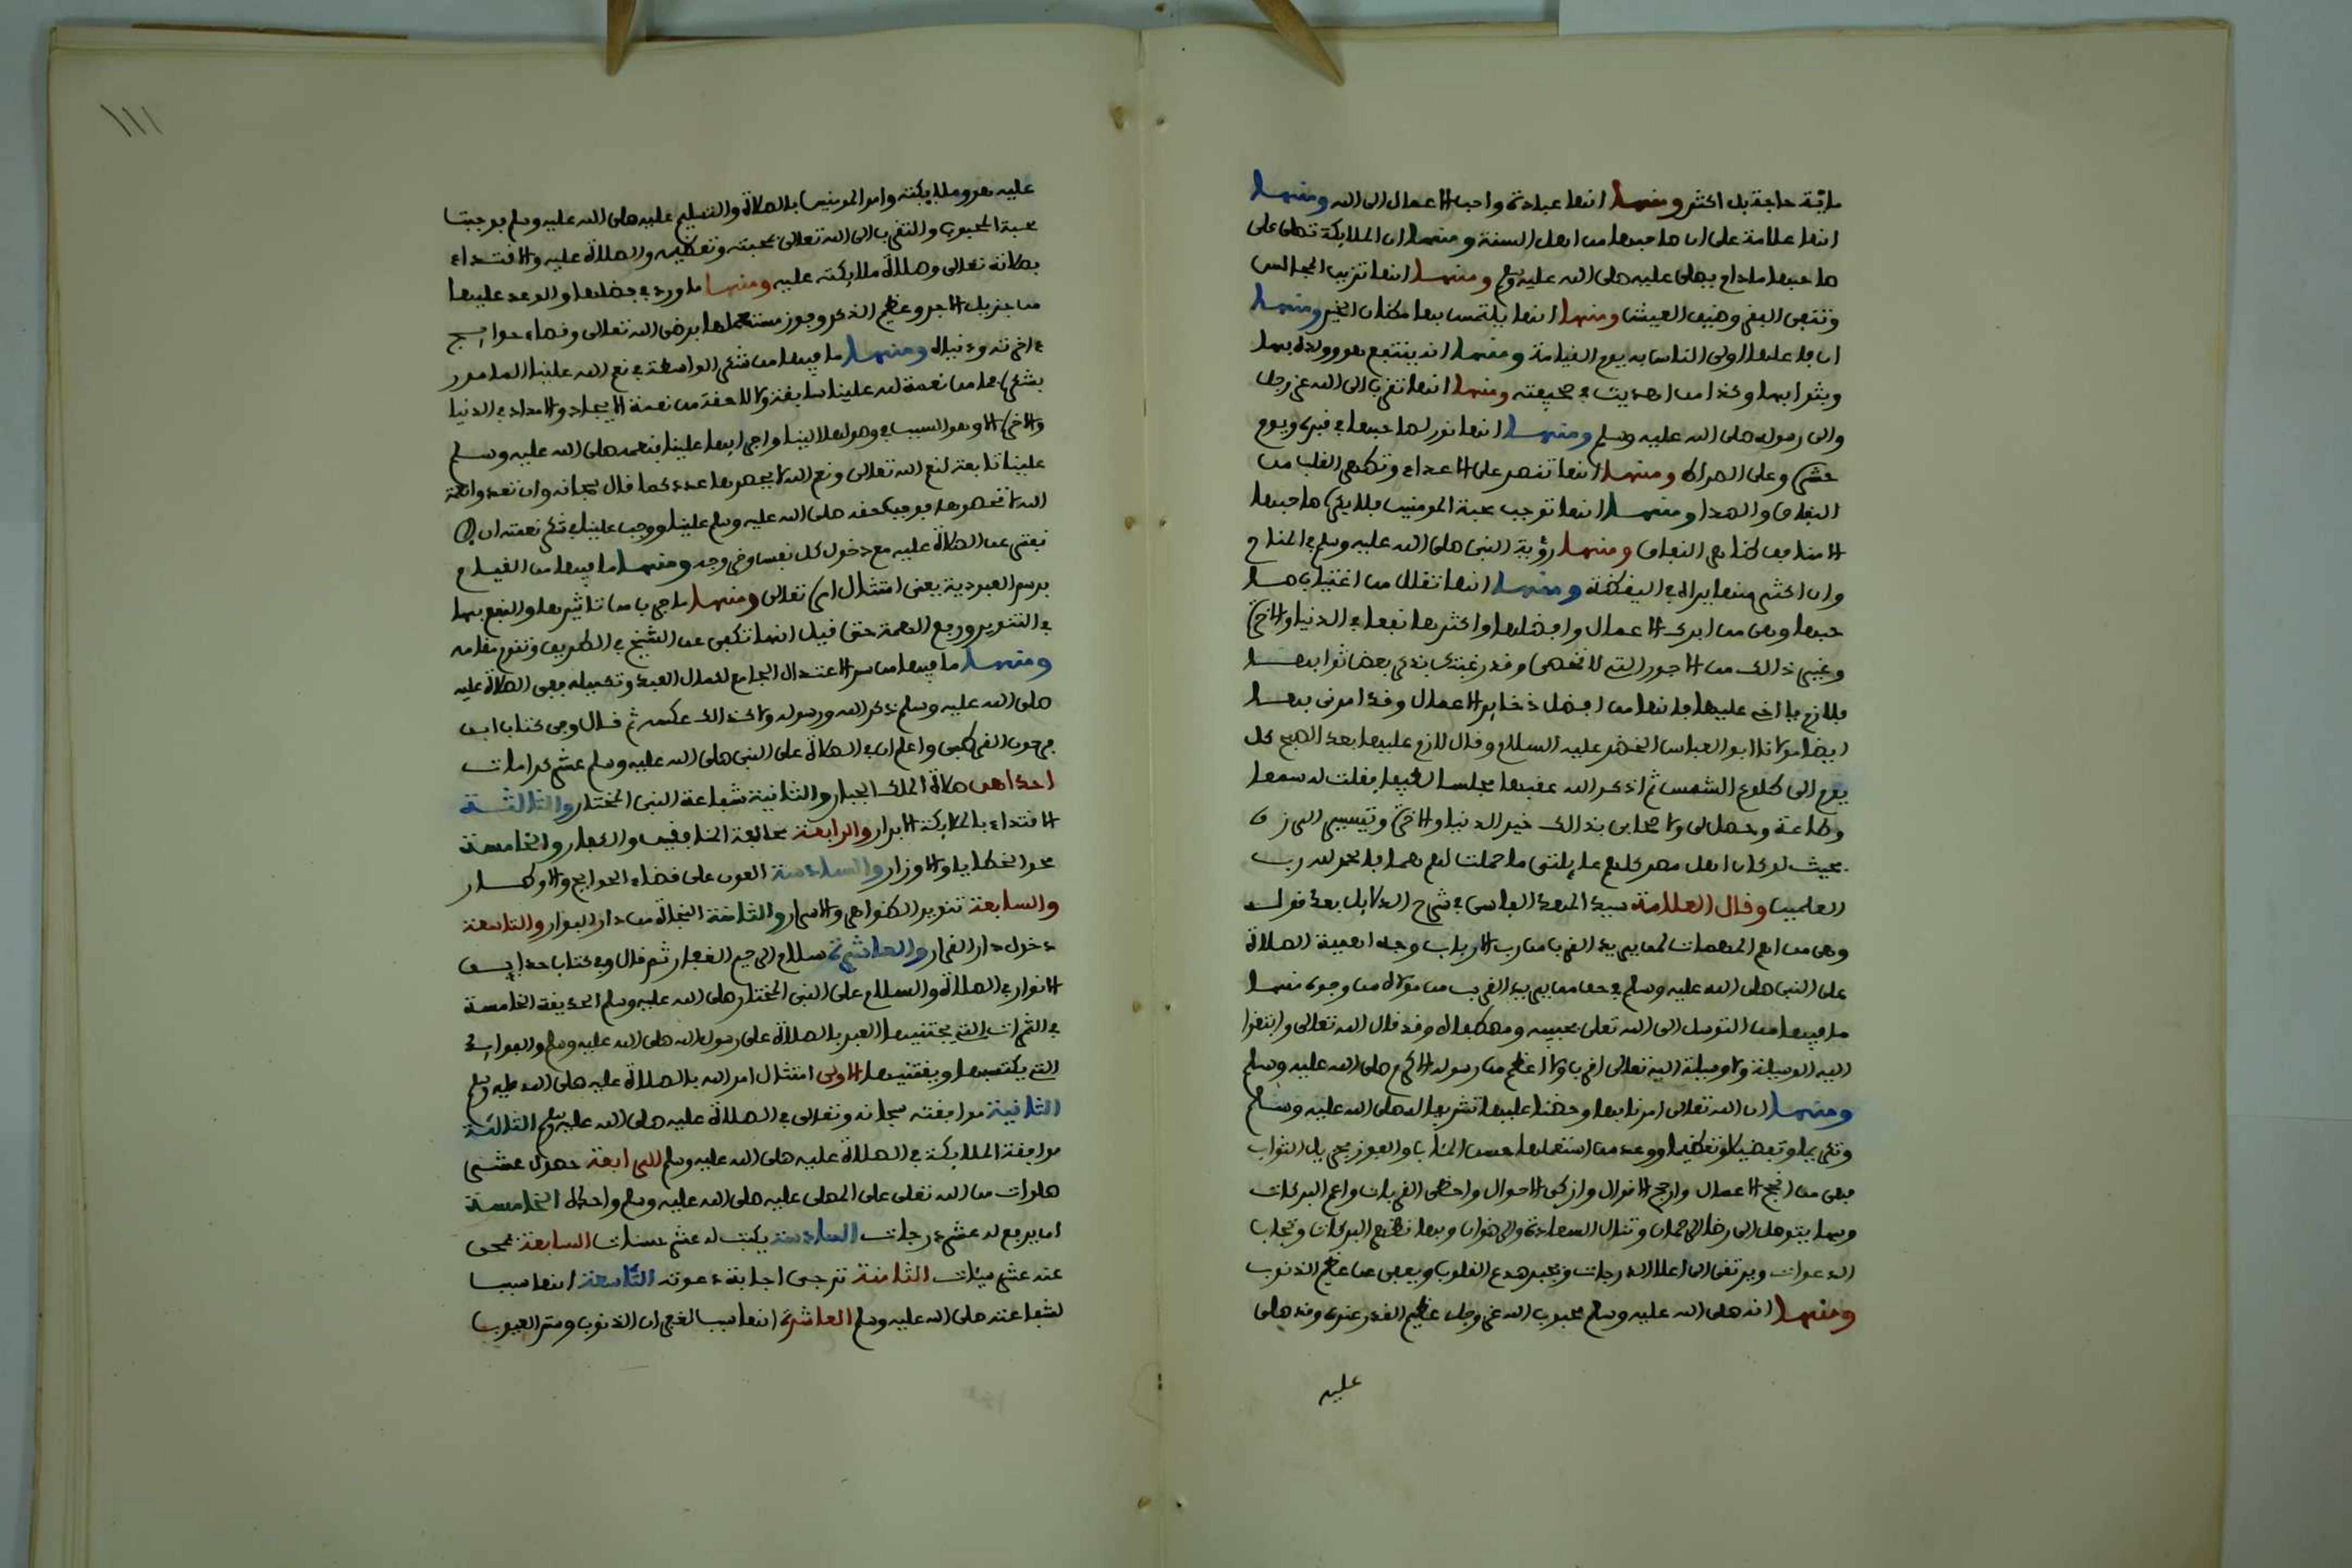 ماية حاجة بل اكثر ومنها انها عبادة واحب الاعمال الى الله ومنها
انها علامة على ان صاحبها من اهل السنة ومنها ان الملايكة تصلى على
صاحبها مادام يصلى عليه صلى الله عليه وسلم ومنها انها تزين المجالس
وتنفى الفقر وضيق العيش ومنها انها يلتمس بها مظان الخير ومنها
ان فاعلها اولى الناس به يوم القيامة ومنها انه ينتفع هو وولده بها
وبثوابها وكذا من اهديت في صحيفته ومنها انها تقرب الى الله عز وجل
والى رسوله صلى الله عليه وسلم ومنها انها نور لصاحبها في قبره ويوم
حشره وعلى الصراط ومنها انها تنصر على الاعداء وتطهر القلب من
النفاق والصدا ومنها انها توجب محبة المومنين فلا يكره صاحبها
الا منافق ظاهر النفاق ومنها رؤية النبى صلى الله عليه وسلم في المنام
وان اكثر منها يراه في اليقظة ومنها انها تقلل من اغتياب صا
حبها وهى من ابرك الاعمال وافضلها واكثرها نفعا في الدنيا والاخرة
وغير ذالك من الاجور التى لا تحصى وقد رغبتك بذكر بعض ثوابها
فلازم يا اخى عليها فانها من افضل ذخاير الاعمال وقد امرنى بها
ايضا مولانا ابو العباس الخضر عليه السلام وقال لازم عليها بعد الصبح كل
يوم الى طلوع الشمس ثم اذكر الله عقبها مجلسا لطيفا فقلت له سمعا
وطاعة وحصل لى ولاصحابى بذالك خير الدنيا والاخرة وتيسير الرزق
بحيث لو كان اهل مصر كلهم عايلتى ما حملت لهم هما فالحمد لله رب
العلمين وقال العلامة سيد المهد الفاسى في شرح الدلايل بعد قوله
وهى من اهم المهمات لمن يريد القرب من رب الارباب وجه اهمية الصلاة
على النبى صلى الله عليه وسلم في حق من يريد القرب من مولاه من وجوه منها
ما فيها من التوسل الى الله تعلى بحبيبه ومصطفاه وقد قال الله تعالى وابتغوا
اليه الوسيلة ولا وسيلة اليه تعالى اقرب ولا اعظم من رسوله الاكرم صلى الله عليه وسلم
ومنها ان الله تعالى امرنا بها وحضنا عليها تشريفا له صلى الله عليه وسلم
وتكريما وتفضيلا وتعظيما ووعد من استعملها حسن المئاب والفوز بجزيل الثواب
فهى من انجح الاعمال وارجح الاقوال وازكى الاحوال واحظى القربات واعم البركات
وبها يتوصل الى رضا الرحمان وتنال السعادة والرضوان وبها تظهر البركات وتجاب
الدعوات ويرتقى الى اعلا الدرجات ويجبر صدع القلوب ويعفى عن عظيم الذنوب
ومنها انه صلى الله عليه وسلم محبوب الله عز وجل عظيم القدر عنده وقد صلى
عليه
١١١
عليه هو وملايكته وامر المومنين بالصلاة والتسليم عليه صلى الله عليه وسلم فوجبت
محبة المحبوب والتقرب الى الله تعالى بمحبته وتعظيمه والصلاة عليه والاقتداء
بصلاته تعالى وصلاة ملايكته عليه ومنها ما ورد في فضلها والوعد عليها
من جزيل الاجر وعظيم الذكر وفوز مستعملها برضى الله تعالى وقضاء حوايج
اخرته ودنياه ومنها ما فيها من شكر الواسطة في نعم الله علينا المامور
بشكره فما من نعمة لله علينا سابقة ولا لاحقة من نعمة الايجاد والامداد في الدنيا
والاخرة الا وهو السبب في وصولها الينا واجرايها علينا فنعمه صلى الله عليه وسلم
علينا تابعة لنعم الله تعالى ونعم الله لا يحصرها عدد كما قال سبحانه وان تعدوا نعمة
الله لا تحصوها فوجب حقه صلى الله عليه وسلم علينا ووجب علينا في شكر نعمته ان لا
نفتر عن الصلاة عليه مع دخول كل نفس وخروجه ومنها ما فيها من القيام
برسم العبودية يعنى امتثال امره تعالى ومنها ما جرب من تاثيرها والنفع بها
في التنوير ورفع الهمة حتى قيل انها تكفى عن الشيخ في الطريق وتقوم مقامه
ومنها ما فيها من سر الاعتدال الجامع لكمال العبد وتكميله ففى الصلاة عليه
صلى الله عليه وسلم ذكر الله ورسوله ولا كذالك عكسه ثم قال وفى كتاب ابن
فرحون القرطبى واعلم ان في الصلاة على النبى صلى الله عليه وسلم عشر كرامات
احداهن صلاة الملك الجبار والثانية شفاعة النبى المختار والثالثة
الاقتداء بالملايكة الابرار والرابعة مخالفة المنافقين والكفار والخامسة
محو الخطايا والاوزار والسادسة العون على قضاء الحوايج والاوطار
والسابعة تنوير الظواهر والاسرار والثامنة النجاة من دار البوار والتاسعة
دخول دار القرار والعاشرة سلام الرحيم الغفار ثم قال وفى كتاب حدايق
الانوار في الصلاة والسلام على النبى المختار صلى الله عليه وسلم الحديقة الخامسة
في الثمرات التى يجتنيها العبد بالصلاة على رسول الله صلى الله عليه وسلم والفوايد
التى يكتسبها ويقتنيها الاولى امتثال امر الله بالصلاة عليه صلى الله عليه وسلم
الثانية موافقته سبحانه وتعالى في الصلاة عليه صلى الله عليه وسلم الثالثة
موافقة الملايكة في الصلاة عليه صلى الله عليه وسلم الرابعة حصول عشر
صلوات من الله تعلى على المصلى عليه صلى الله عليه وسلم واحدة الخامسة
ان يرفع له عشر درجات السادسة يكتب له عشر حسنات السابعة يمحى
عنه عشر سيئات الثامنة ترجى اجابة دعوته التاسعة انها سبب
لشفاعته صلى الله عليه وسلم العاشرة انها سبب لغفران الذنوب وستر العيوب